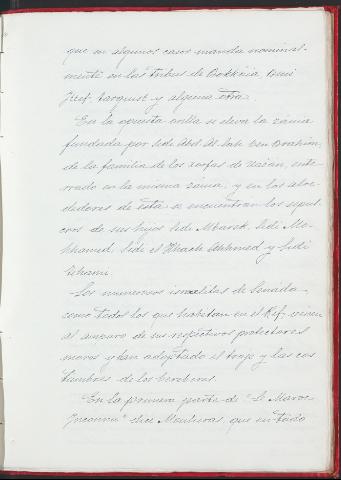 que en algunos casos manda nominal-
mente en las tribus de Bokkóia Beni
Itef, Targuist y alguna otra.
En la opuesta orilla se eleva la zauia
fundada por Sidi Abd Al-lah ben Brahim,
de la familia de los xorfas de Uazán, ente-
rrado en la misma zauia, y en los alre-
dedores de ésta se encuentran los sepul-
cros de sus hijos Sidi Mbarek, Sidi Mo-
hhamed, Sidi el Hhach Ahhmed y Sidi
Los numerosos israelitas de Senada
como todos los que habitan en el Rif, viven
al amparo de sus respectivos protectores
moros y han adoptado el traje y las cos
tumbres de los bereberes.
En la primera parte de "Le Maroc
Inconnu" dice Mouliéras, que en todo